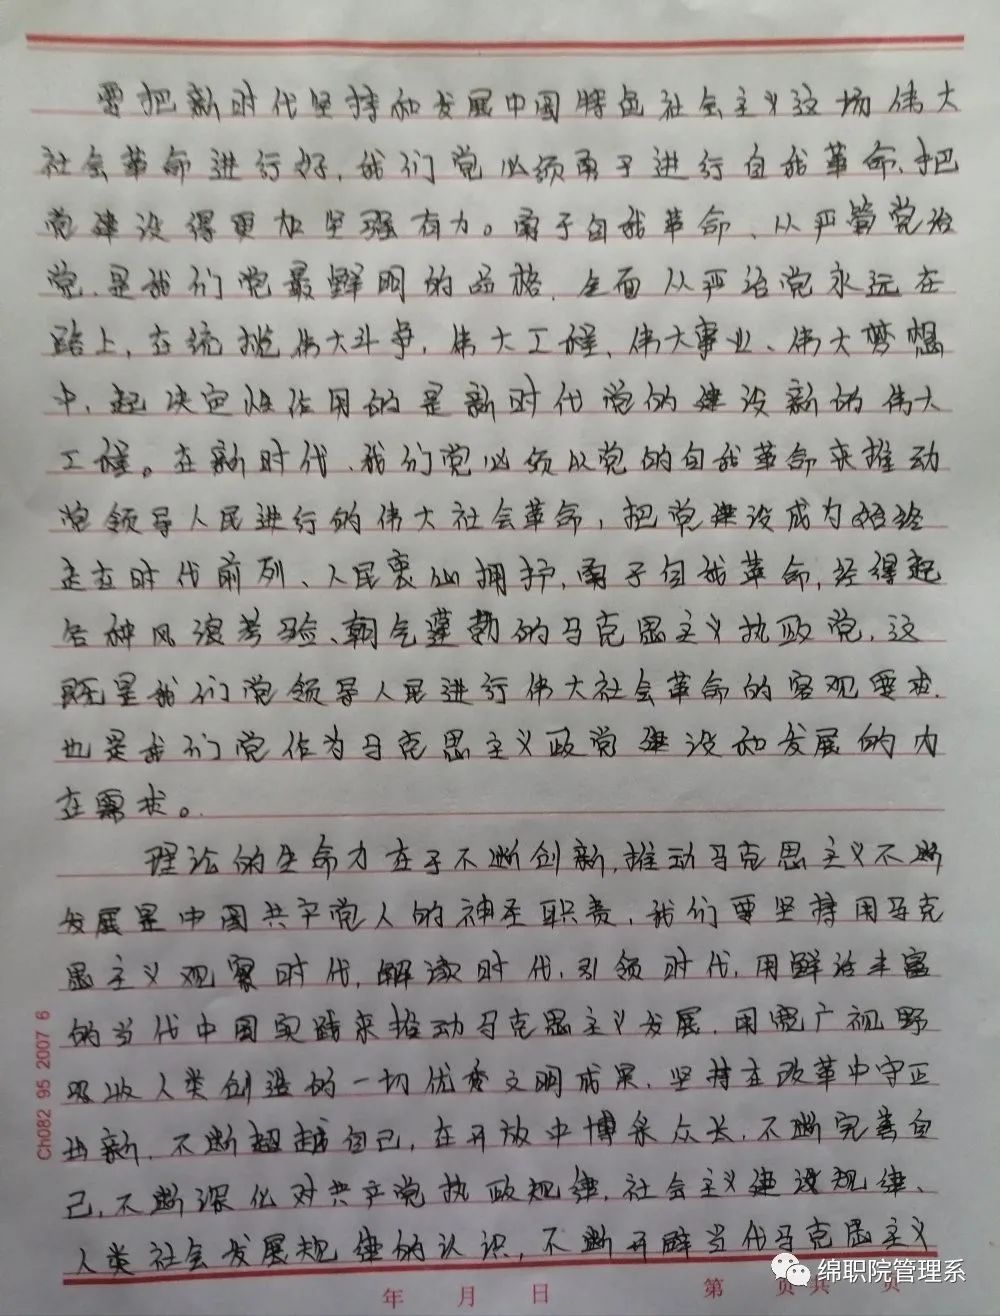 要把新时代坚持和发展中国特色社会主义这场伟大
社会革命进行好,我们党必须勇于进行自我革命、把
党建设得更加坚强有力。勇于自我革命、从严管党治
党、是我们党最鲜明的品格、全面从严治党永远在
路上,在统揽伟大斗争,伟大工程、伟大事业、伟大梦想
中,起决定性作用的是新时代党的建设新的伟大
工程。在新时代、我们党必须以党的自我革命来推动
党领导人民进行的伟大社会革命,把党建设成为始终
走在时代前列、人民衷心拥护,勇于自我革命,经得起
各种风浪考验、朝气蓬勃的马克思主义执政党,这
既是我们党领导人民进行伟大社会革命的客观要求.
也是我们党作为马克思主义政党建设和发展的内
在需求。
理论的生命力在于不断创新,推动马克思主义不断
发展是中国共产党人的神圣职责,我们要坚持用马克
思主义观察时代,解读时代,引领时代,用鲜活丰富
的当代中国实践来推动马克思主义发展,用宽广视野
吸收人类创造的一切优秀文明成果,坚持在改革中守正
出新,不断超越自己,在开放中博采众长,不断完善自
己,不断深化对共产党执政规律,社会主义建设规律、
人类社会发展规律的认识,不断开辟当代马克思主义
年 月 日 第 页共 页
Ch082 95 2007 6
绵职院管理系